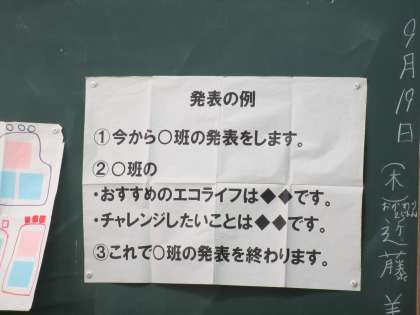 発表の例
①今から〇班の発表をします。
②〇班の
・おすすめのエコライフは◆◆です。
・チャレンジしたいことは◆◆です。
③これで〇班の発表を終わります。
9月19日(木)
近藤